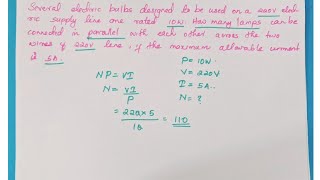 Several electric bulbs designed to be used on a 220V elect-
ric supply line are rated 10W. How many lamps can be
connected in parallel with each other across the two
wires of 220V line, if the maximum allowable current
is 5A.
P = 10W
V = 220V
I = 5A
N = ?
NP = VI
N = VI
P
= 220 × 5
10
= 110